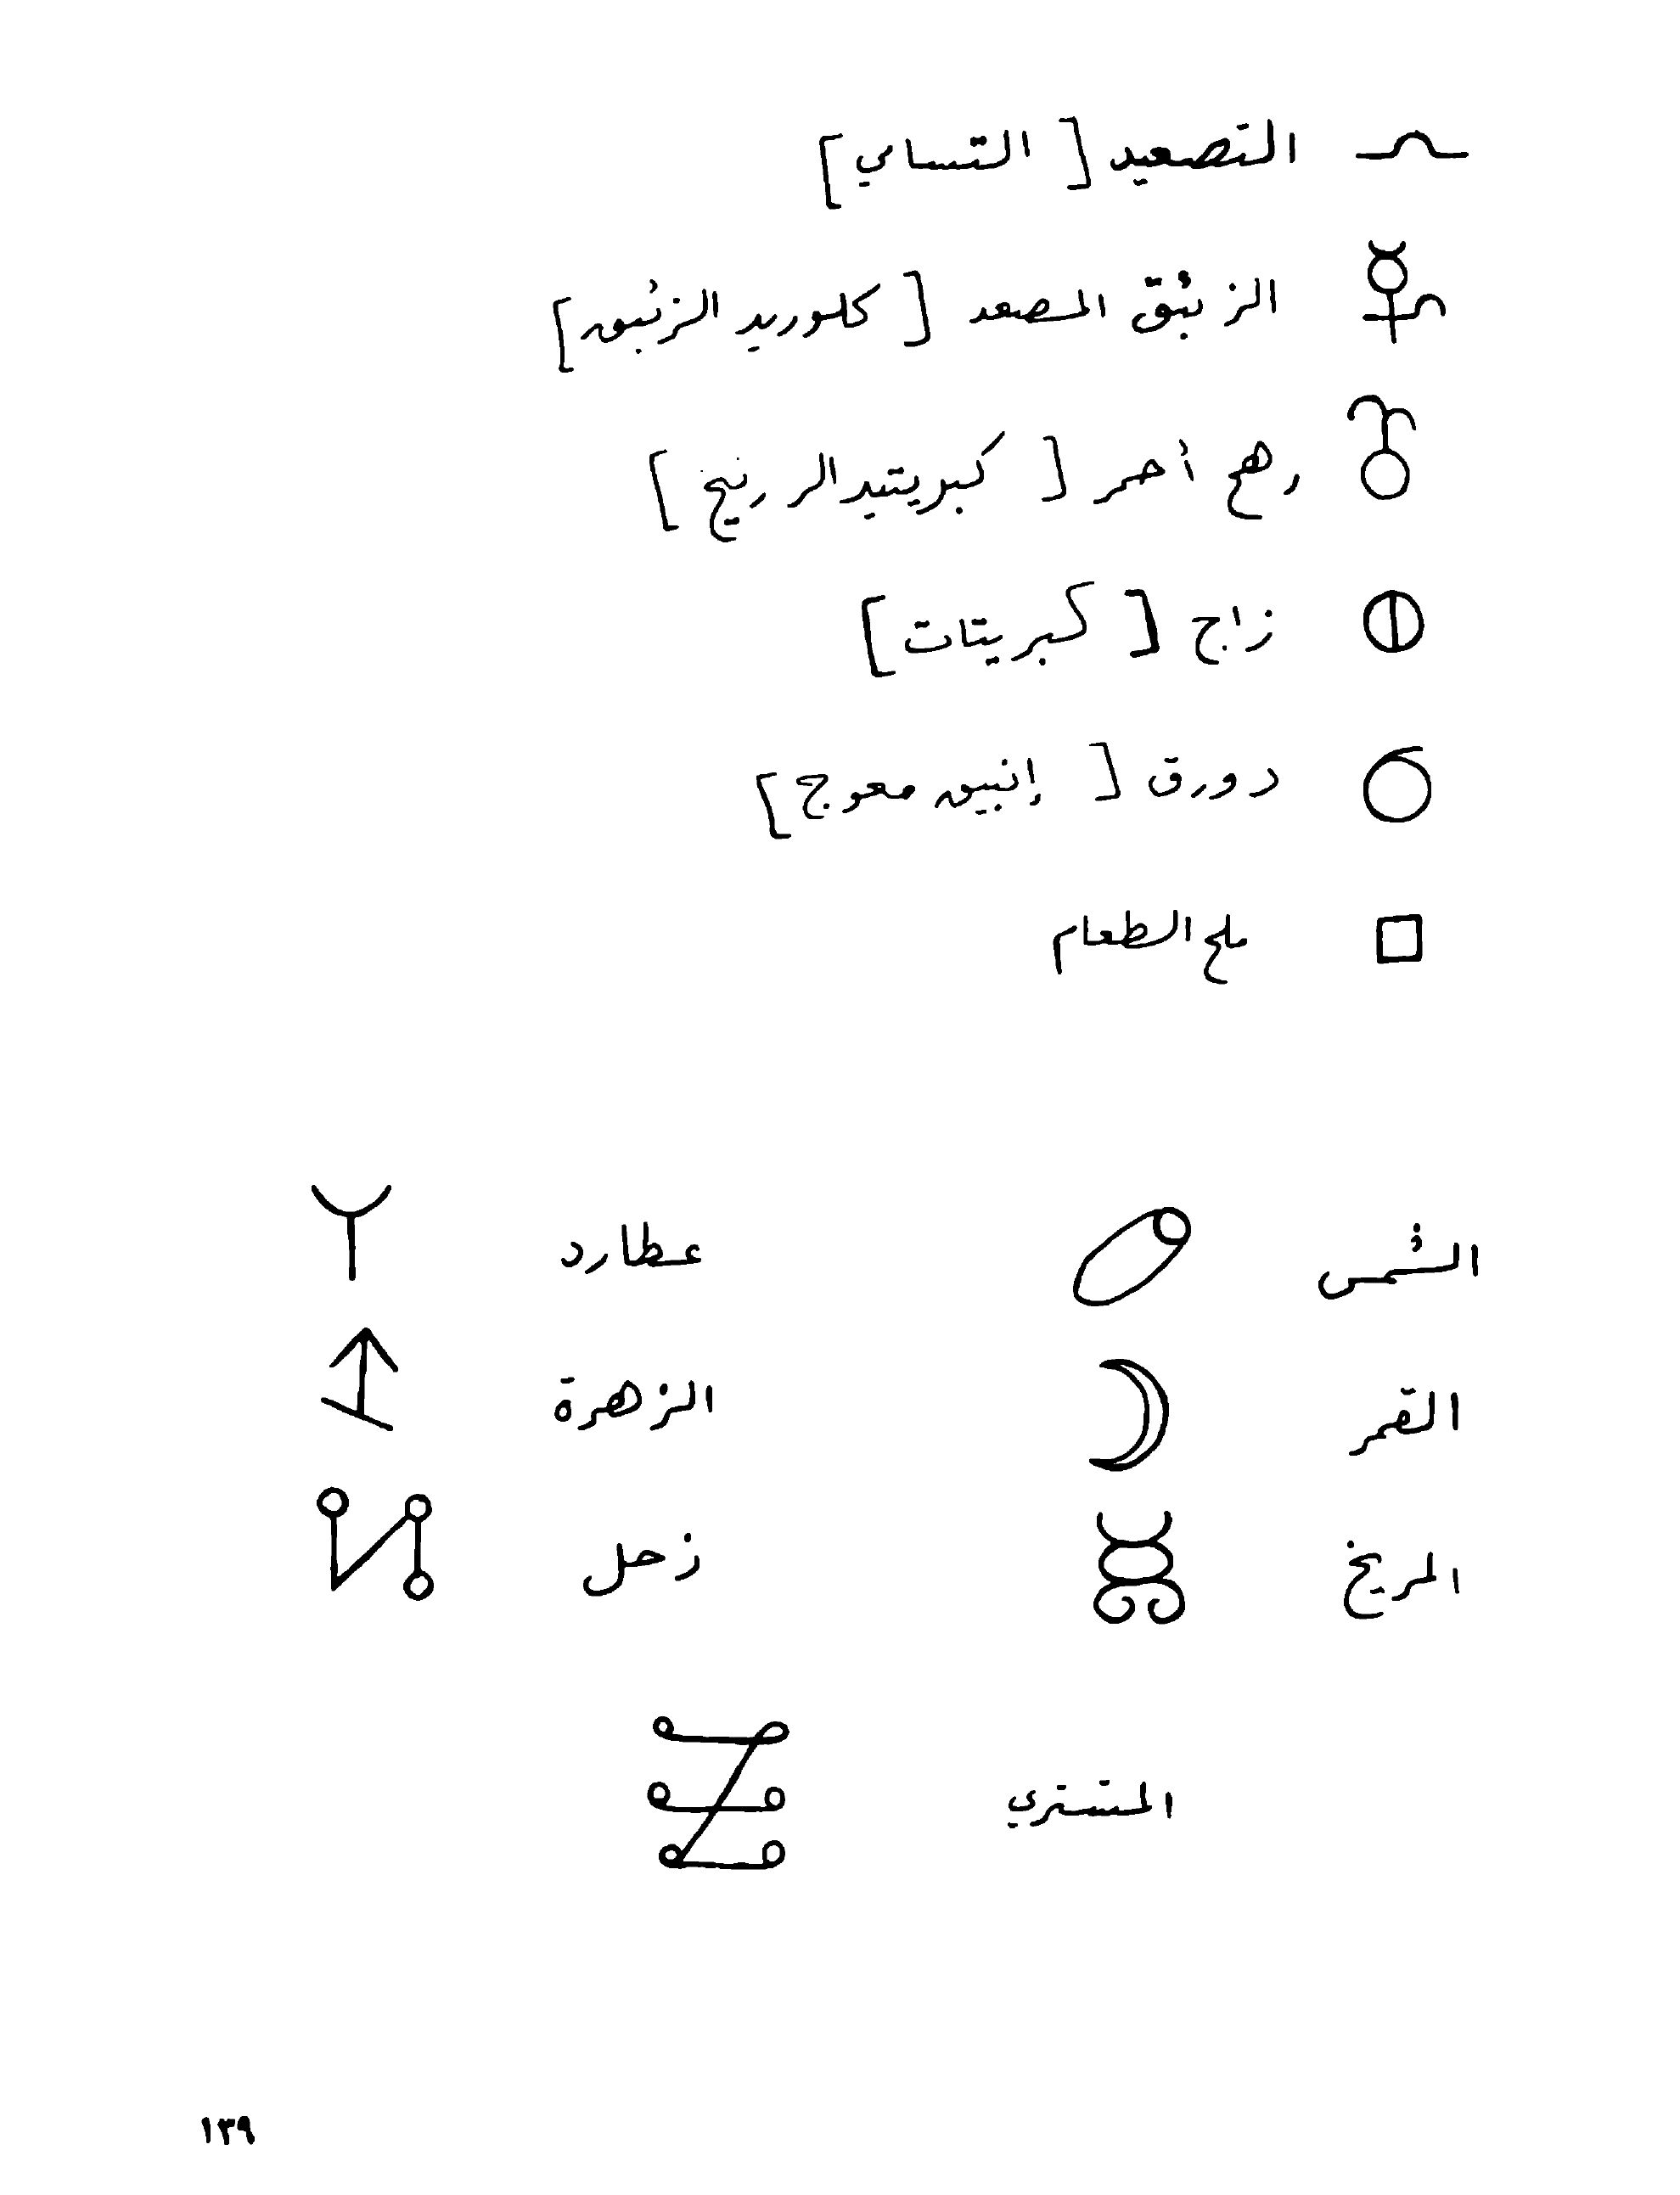 التصعيد [ التسامي ]
الزئبق المصعد [ كلوريد الزئبق ]
رهج أحمر [ كبريتيد الزرنيخ ]
زاج [ كبريتات ]
دورق [ إنبيق معوج ]
ملح الطعام
الشمس عطارد
القمر الزهرة
المريخ زحل
المشتري
١٣٩